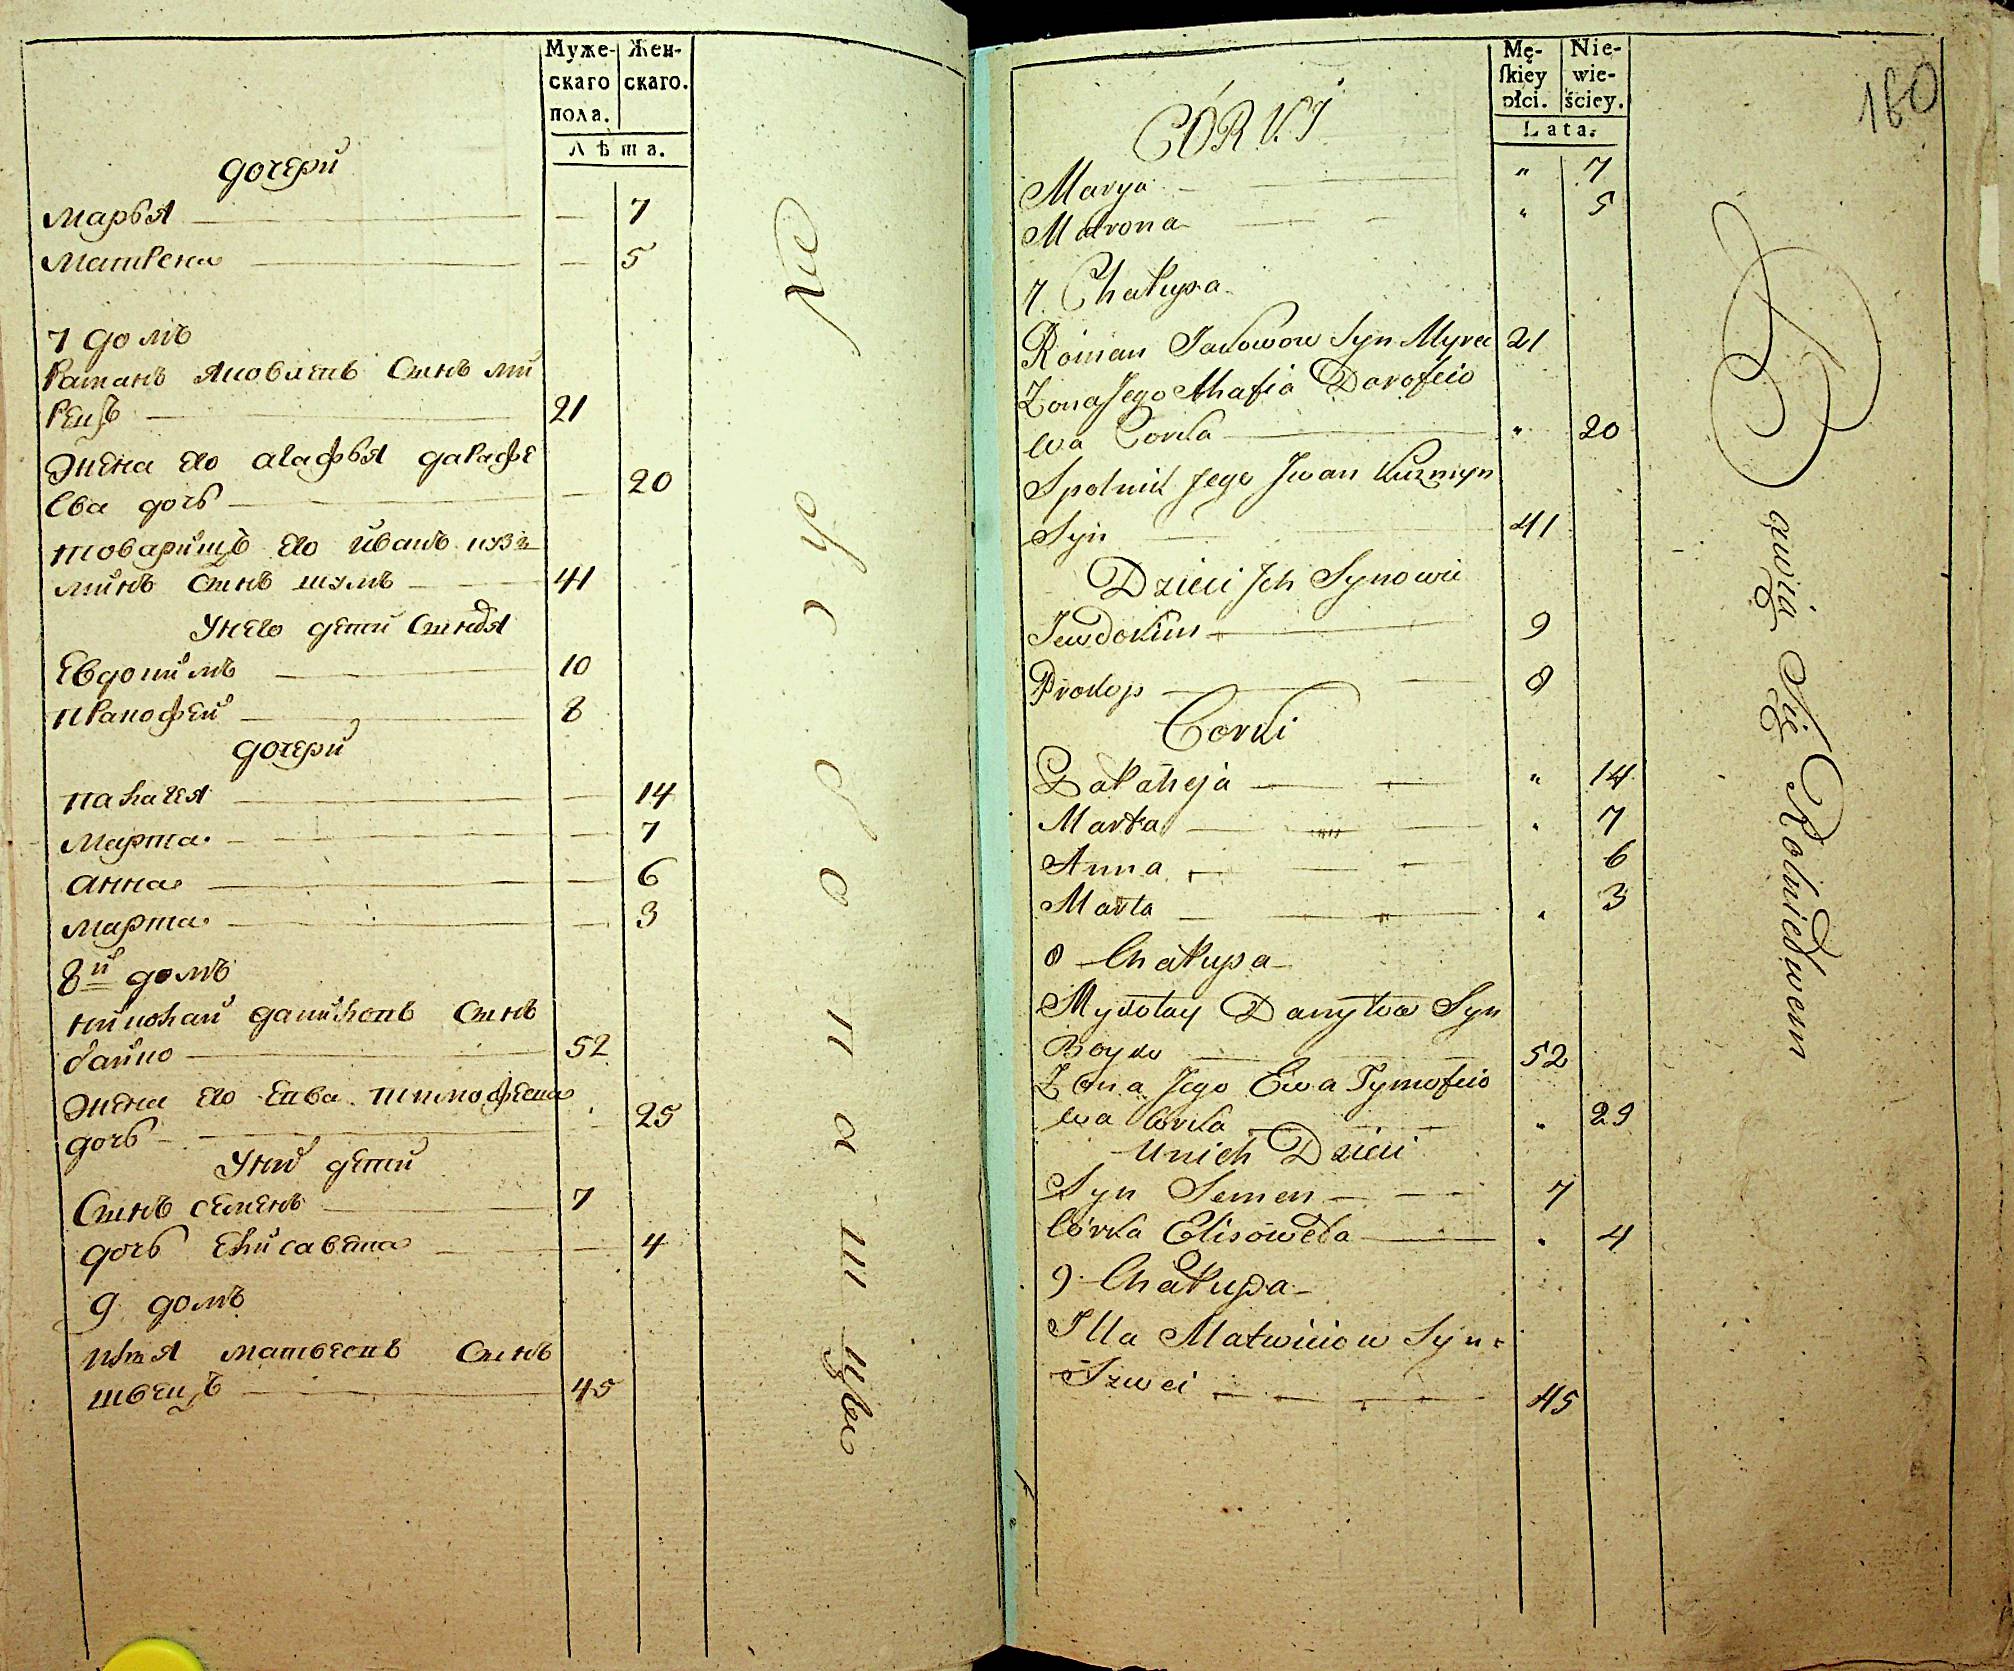 Муже-
скаго
пола.
Жен-
скаго.
Лѣта.
дочери
Марья — — 7
Матрена — — 5
7 домъ
Раманъ Яковлевъ Сынъ ми
рецъ — 21
Жена его агафья дарафе
ева дочь — — 20
товарищъ его иванъ кузъ
минъ Сынъ — 41
У него дети Сыновя
Евдокимъ — 10
пракофей — 8
дочери
палагея — — 14
Марта — — 7
анна — — 6
марта — — 3
8й домъ
николай данилопъ Сынъ
байко — 52
Жена его
дочь — 25
У них дети
Сынъ семенъ — 7
дочь елисавета — — 4
9 домъ
илья матвеевъ Сынъ
швецъ — 45
Mę-
skiey
płci.
Nie-
wie-
ściey.
Lata.
160
CÓRKI
Marya — — " 7
Matrona — - " 5
7 Chałupa
Roman Jakowow Syn Myrec 21
Zona Jego Ahafia Dorofeio
wa Corka — " 20
Spolnik Jego Jwan Kuzmyn
Syn — 41
Dzieci Jch Synowie
Jewdokim — 9
Prokop — 8
Corki
— " 14
Marta — " 7
Anna — " 6
Marta — " 3
8 Chałupa
Mykołay Danyłow Syn
Boyko — 52
Zona Jego Ewa Tymofeio
wa Corka — " 25
U nich Dzieci
Syn Semen — 7
Córka Elisoweta — " 4
9 Chałupa
Illa Matwieiow Syn
Szwec — 45
Się Rolnictwem